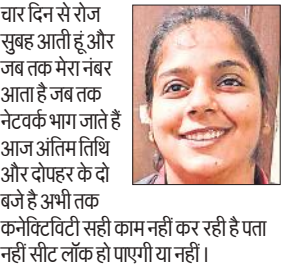 चार दिन से रोज
सुबह आती हूं और
जब तक मेरा नंबर
आता है जब तक
नेटवर्क भाग जाते हैं
आज अंतिम तिथि
और दोपहर के दो
बजे है अभी तक
कनेक्टिविटी सही काम नहीं कर रही है पता
नहीं सीट लॉक हो पाएगी या नहीं।